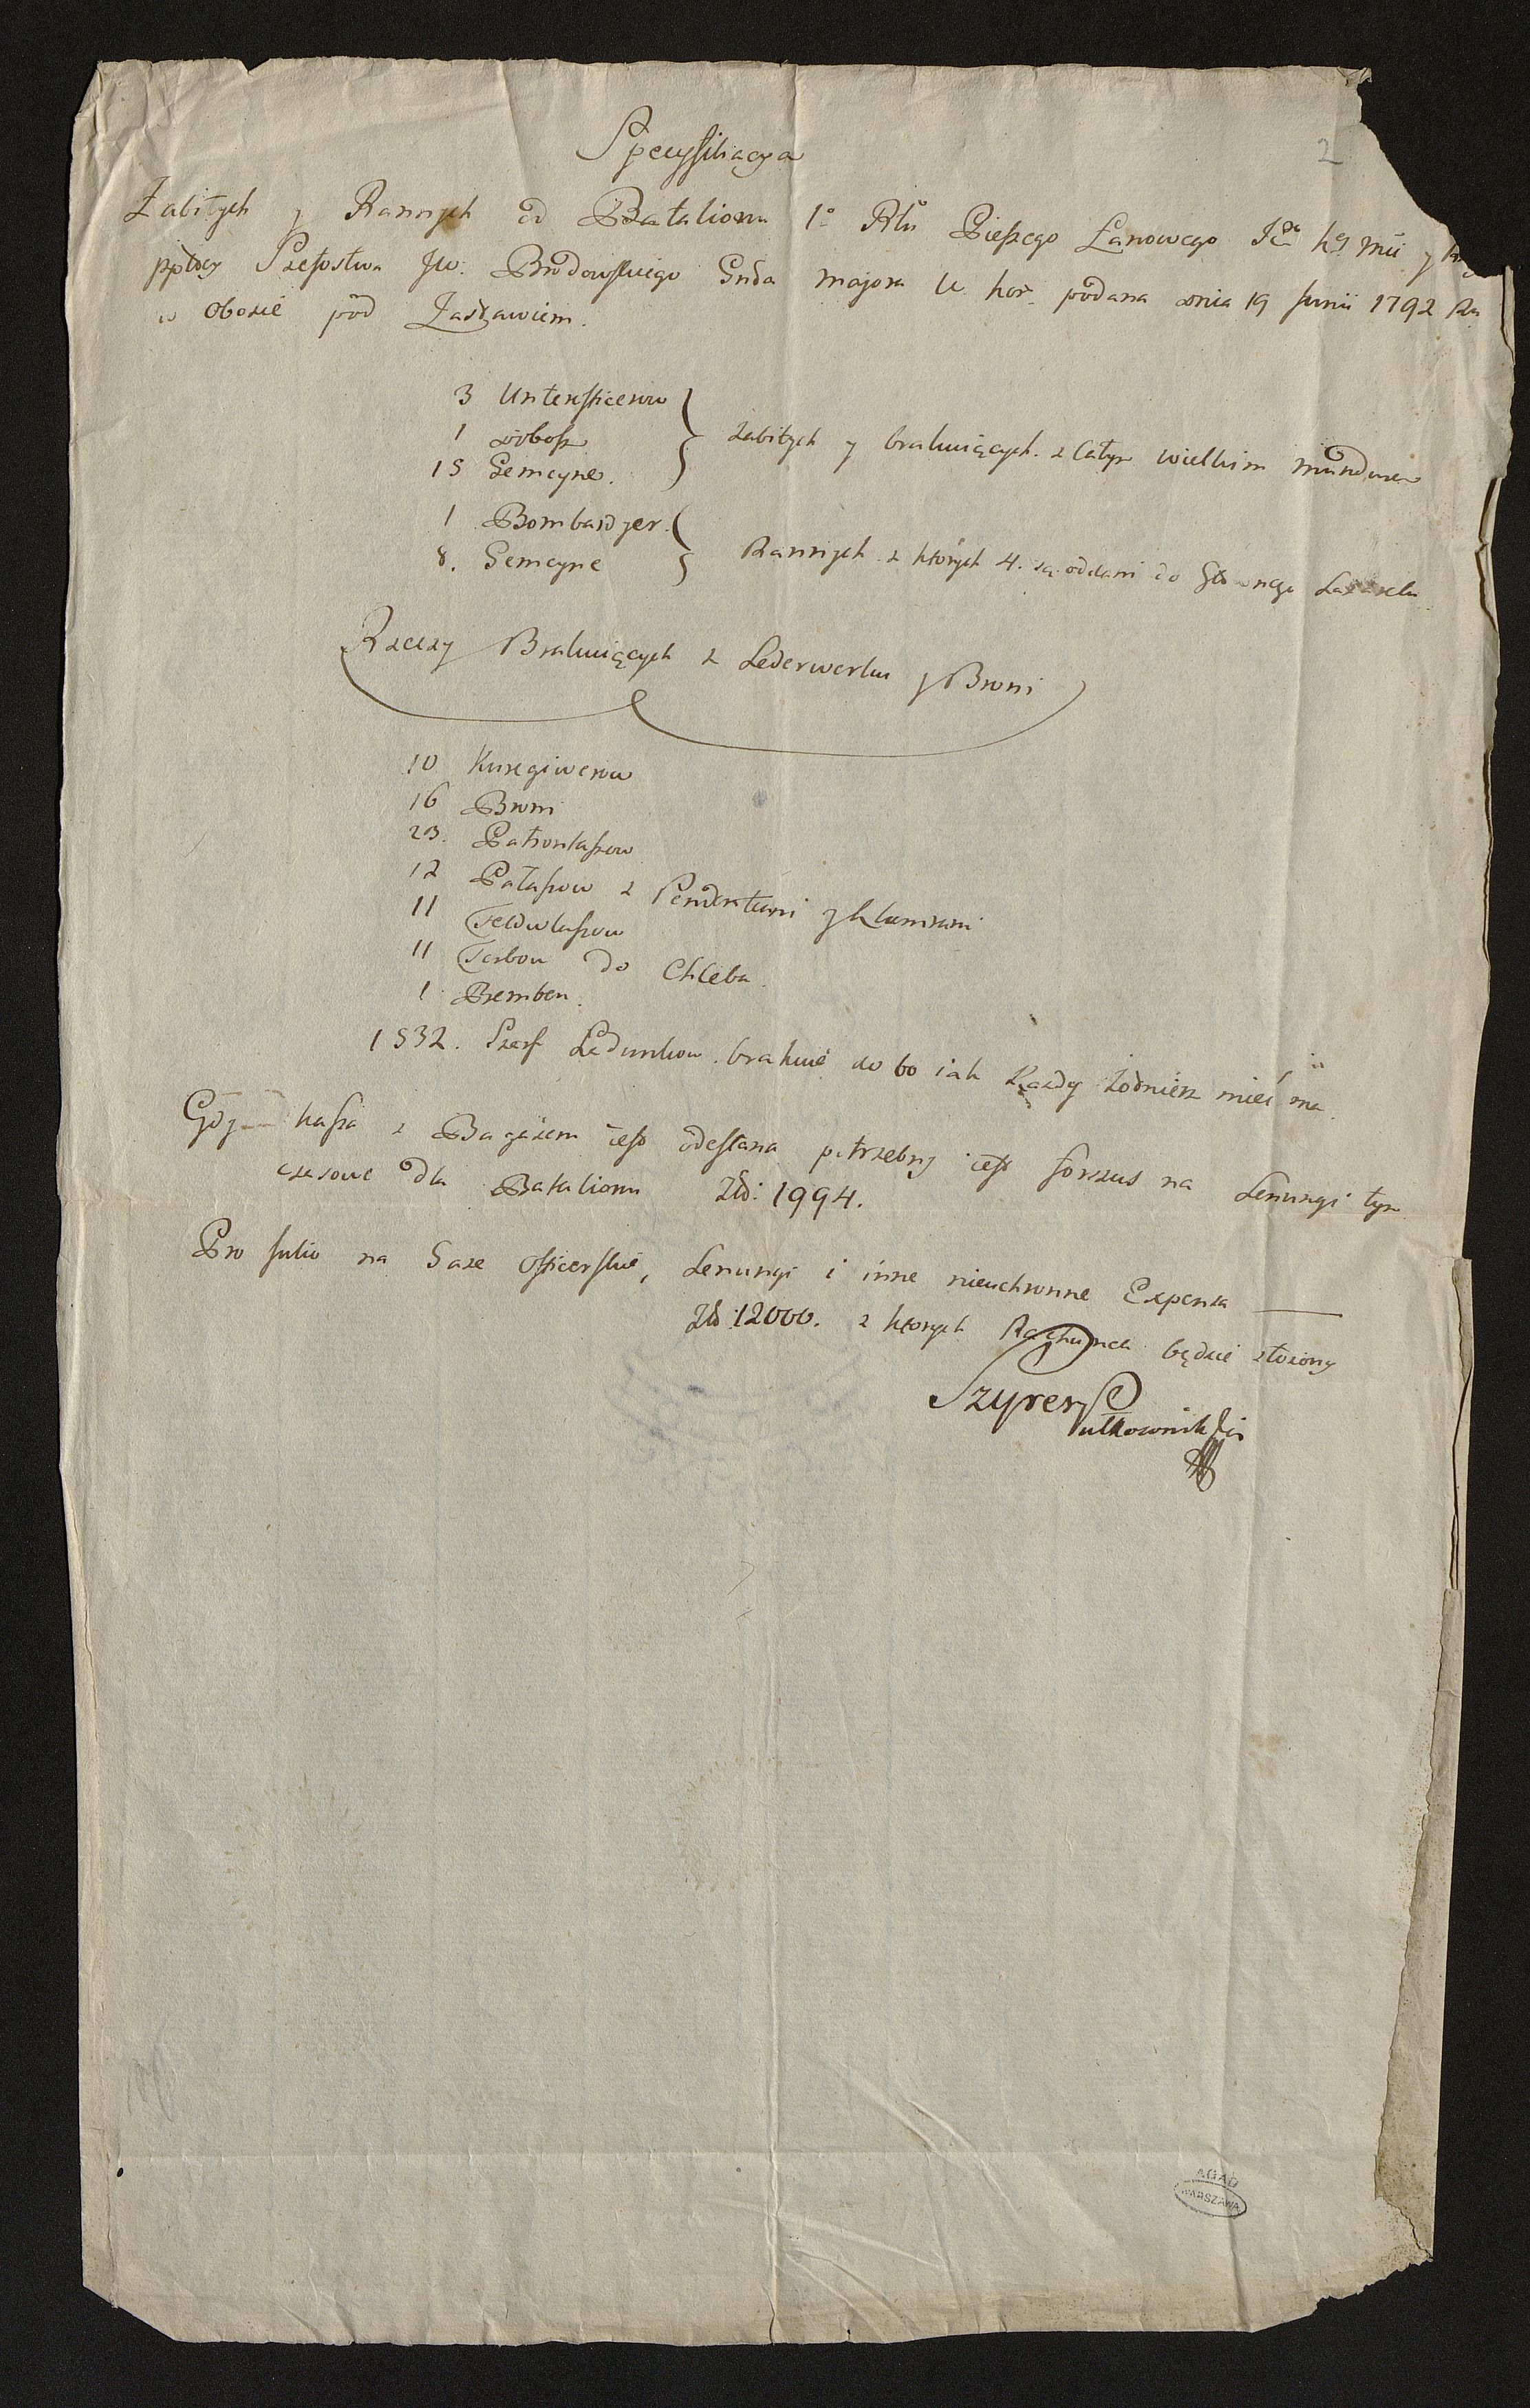 Specyfikacya
2
Zabitych y Rannych od Batalionu 1o Rtu Pieszego Łanowego Jca Kg Mci y
pptey Szefostwa JW: Brodowskiego Gnła Majora W. Kor. podana dnia 19 Junii 1792 Ru
w Obozie pod Zasławiem.
3 Unterofficerow
1 Dobosz
15 Gemeyne.
zabitych y brakuiących. z Całym wielkim mundurem
1 Bombardyer.
8. Gemeyne
Rannych z których 4. są oddani do Głównego Lazaretu
Rzeczy Brakuiących z Lederwerku y Broni
10 Kurzgiwerow
16 Broni
23. Patrontaszow
12 Pałaszow z Pendentami y Klamrami
11 Feldwlaszow
11 Torbow do Chleba
1 Bemben.
1532. Szarf Ładunkow brakuie do 60 iak Kazdy żołnierz mieć ma.
Gdy Kassa z Bagażem iest odesłana potrzebny iest forszus na Lenungi tym
czasowe dla Batalionu Zł: 1994.
Pro Julio na Gaze Officerskie, Lenungi i inne nieuchronne Expensa
Zł 12000. z ktorych Rachunek będzie złożony
Szyrer Pułkownik
AGAD
WARSZAWA